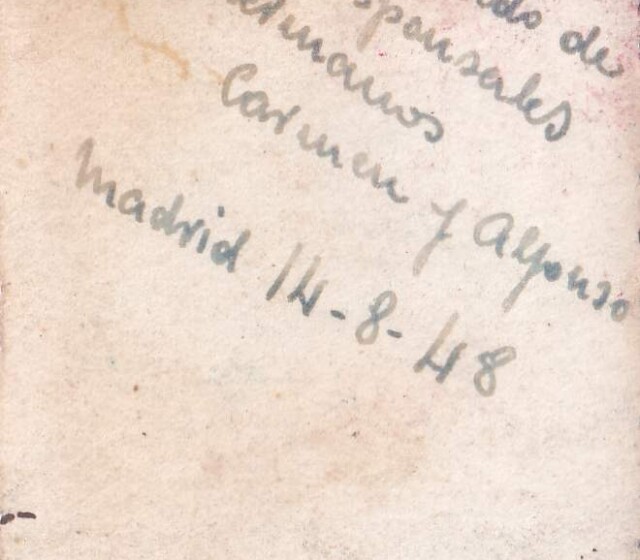 de
sponsales
manos
Carmen y Alfonso
Madrid 14-8-48